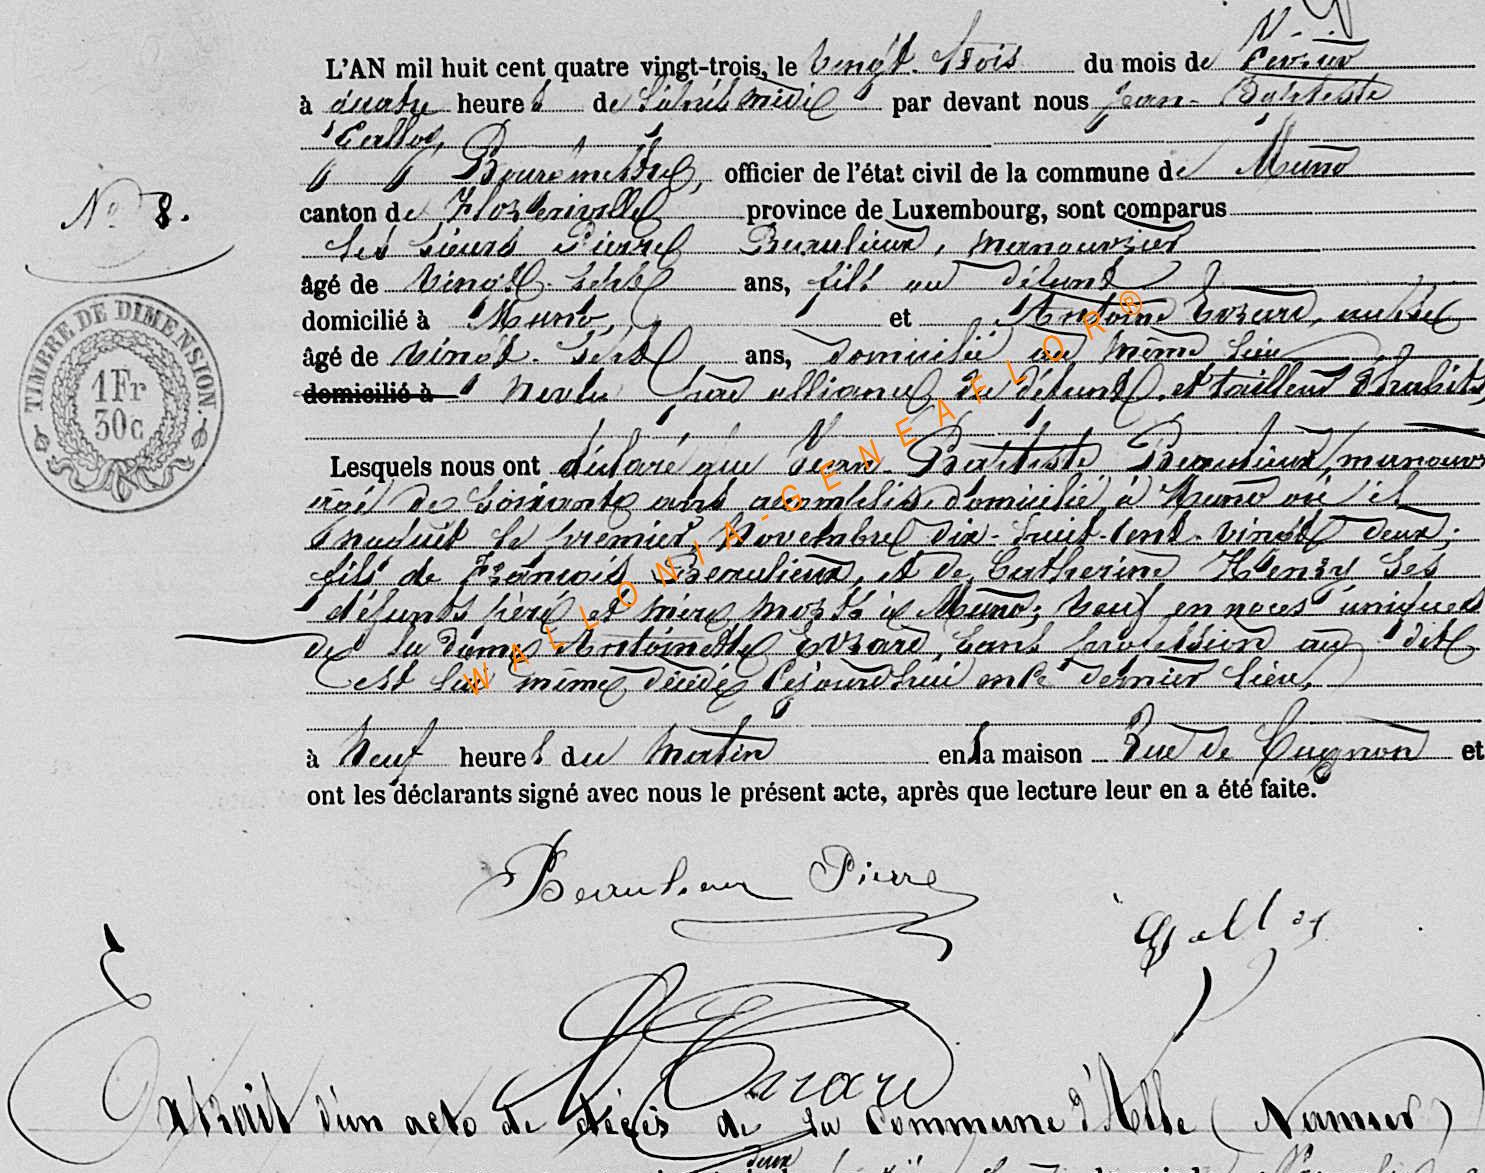 L'AN mil huit cent quatre vingt-trois, le vingt-trois du mois de Février
à quatre heures de l'après midi par devant nous Jean-Baptiste
Bourgmestre, officier de l'état civil de la commune de Muno
N° 8.
canton de Florenville province de Luxembourg, sont comparus
les sieurs Pierre Beaulieux, manouvrier
âgé de vingt-sept ans, fils du défunt
domicilié à Muno, et Antoine Evrard, aussi
âgé de vingt-sept ans, domicilié au même lieu
domicilié à neveu par alliance du défunt, et tailleur d'habits,
TIMBRE DE DIMENSION.
1 Fr
30c
Lesquels nous ont déclaré que Jean-Baptiste Beaulieux, manouvr
agé de soixante ans accomplis, domicilié à Muno où il
naquit le premier Novembre dix-huit-cent-vingt deux,
fils de François Beaulieux, et de Catherine Henry ses
défunts père et mère morts à Muno; veuf en noces uniques
de la dame Antoinette Evrard, sans profession au dit
est lui même décédé cejourd'hui en ce dernier lieu,
à neuf heures du matin en la maison Rue de Cugnon et
ont les déclarants signé avec nous le présent acte, après que lecture leur en a été faite.
Beaulieux Pierre
Evrard
Extrait d'un acte de décès de la Commune d'Alle (Namur)
deux
WALLONIA-GENEAFLOR®